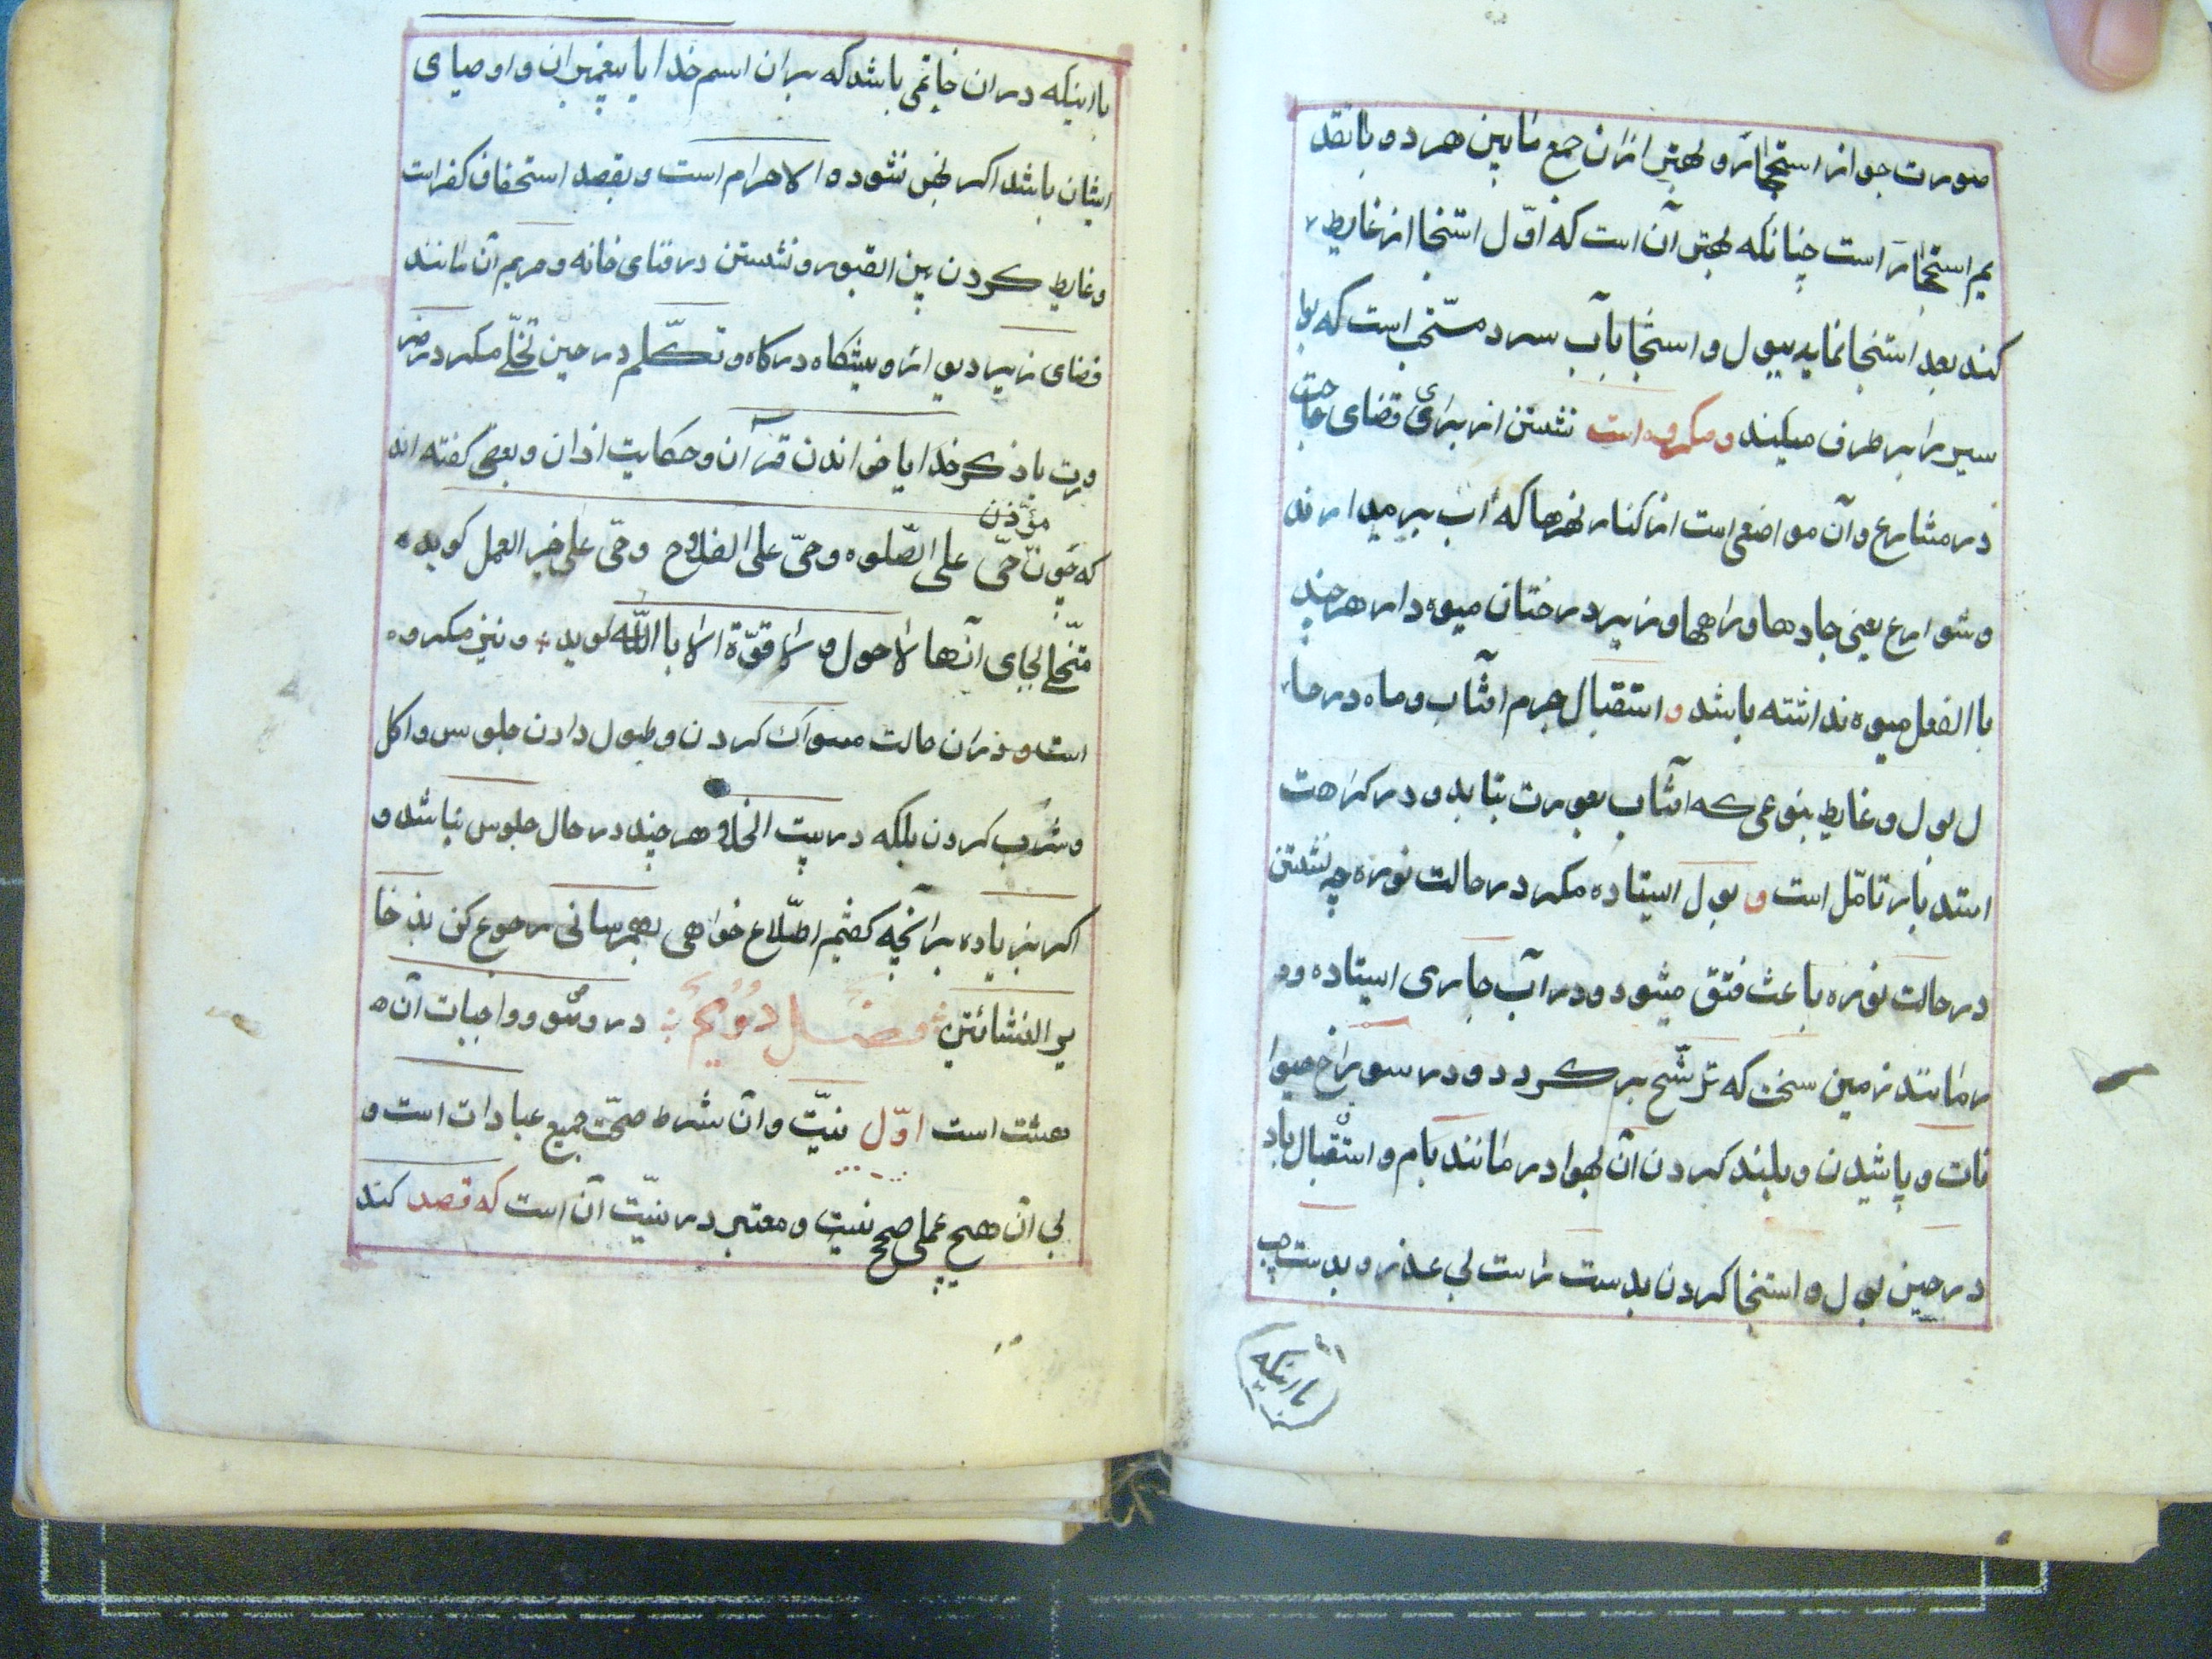 صورت جواز استجمار و بهتر ازان جمع مابین هر دو با تقد
یم استجمار است چنانکه بهتر آن است که اوّل استنجا از غایط
کند بعد استنجا نماید ببول و استنجا بآب سرد مستحب است که بوا
سیر را بر طرف میکند و مکروه است نشستن از برای قضای حاجت
در مشارع و آن مواضعی است از کنار نهرها که آب بر میدارند
و شوارع یعنی جادها و راهها و زیر درختان میوه دار هر چند
باالفعل میوه نداشته باشد و استقبال جرم افتاب و ماه در حا
ل بول و غایط بنوعی که افتاب بعورت بتابد و در کراهت
استدبار تامّل است و بول ایستاده مکر در حالت نوره چه نشستن
در حالت نوره باعث فتق میشود و در آب جاری ایستاده و د
ر مانند زمین سخت که ترشّح بر کردد و در سوراخ حیوا
نات و پاشیدن و بلند کردن آن بهوا در مانند بام و استقبال باد
در حین بول و استنجا کردن بدست راست بی عذر و بدست چپ
بااینکه
بااینکه دران خاتمی باشد که بران اسم خدا یا پیغمبران و اوصیای
ایشان باشد اکر نجس نشود و الا حرام است و بقصد استخفاف کفر است
و غایط کردن بین القبور و نشستن در فنای خانه و حریم آن مانند
فضای زیر دیوار و پیشکاه درکاه و تکّلم در حین تخلّے مکر در ضر
ورت یا ذکر خدا یا خواندن قرآن و حکایت اذان و بعضی کفته اند
که چون مؤذن حیّ علی الصّلوه و حیّ علی الفلاح و حیّ علی خیر العمل کوید
متخلّے بجای آنها لا حول و لا قوّة الا باالله کوید و نیز مکروه
است دران حالت مسواک کردن و طول دادن جلوس و اکل
و شرب کردن بلکه در بیت الخلا و هر چند در حال جلوس نباشد و
اکر بزیاده برانچه کفتم اطّلاع خواهی بهمرسانی رجوع کن بذخا
یر النشائتین فصل دویّم در وضو و واجبات آن
هشت است اوّل نیّت و آن شرط صحّت جمیع عبادات است و
بی آن هیچ عملی صحیح نیست و معتبر در نیّت آن است که قصد کند